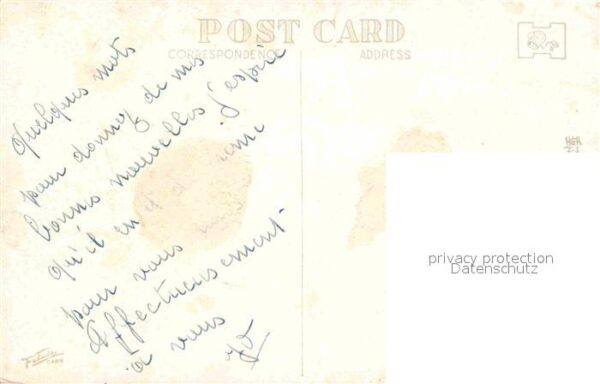 POST CARD
CORRESPONDENCE
ADDRESS
Quelques mots
pour donner de mes
bonnes nouvelles j'espère
qu'il en
pour vous
Affectueusement
à vous
privacy protection
Datenschutz